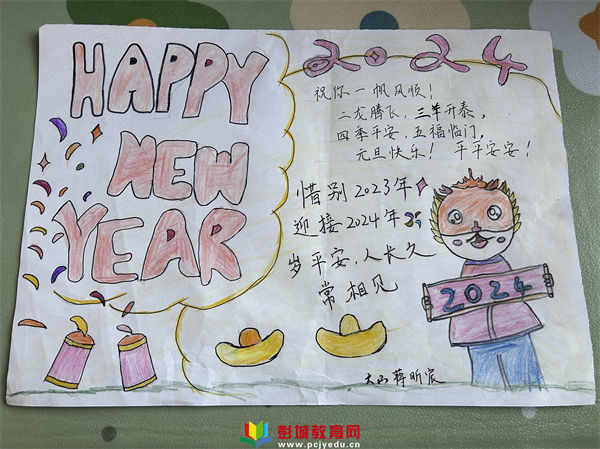 HAPPY
NEW
YEAR
2024
祝你一帆风顺！
二龙腾飞，三羊开泰，
四季平安，五福临门，
元旦快乐！平平安安！
惜别2023年
迎接2024年
岁平安，人长久
常相见
2024
大四 蒋昕宸
彭城教育网
www.pcjyedu.cn